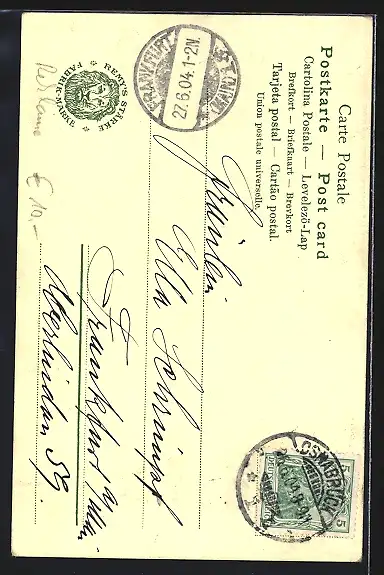 Carte Postale
Postkarte — Post card
Cartolina Postale — Levelező-Lap
Brefkort — Briefkaart — Brevkort
Tarjeta postal — Cartão postal.
Union postale universelle.
FRANKFURT
27.6.04.1-2N
* (MAIN) *
REMY'S STÄRKE
FABRIK-MARKE
Reklame
€ 10,-
OSNABRÜCK
5 5
Fräulein
Ella Schrimpf
Frankfurt a/Main
Oberlindau 59.